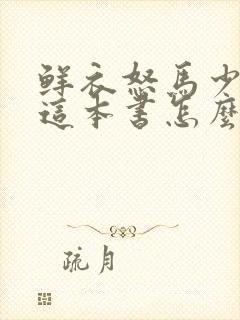 鲜衣怒马少
這本书怎麼
疏月